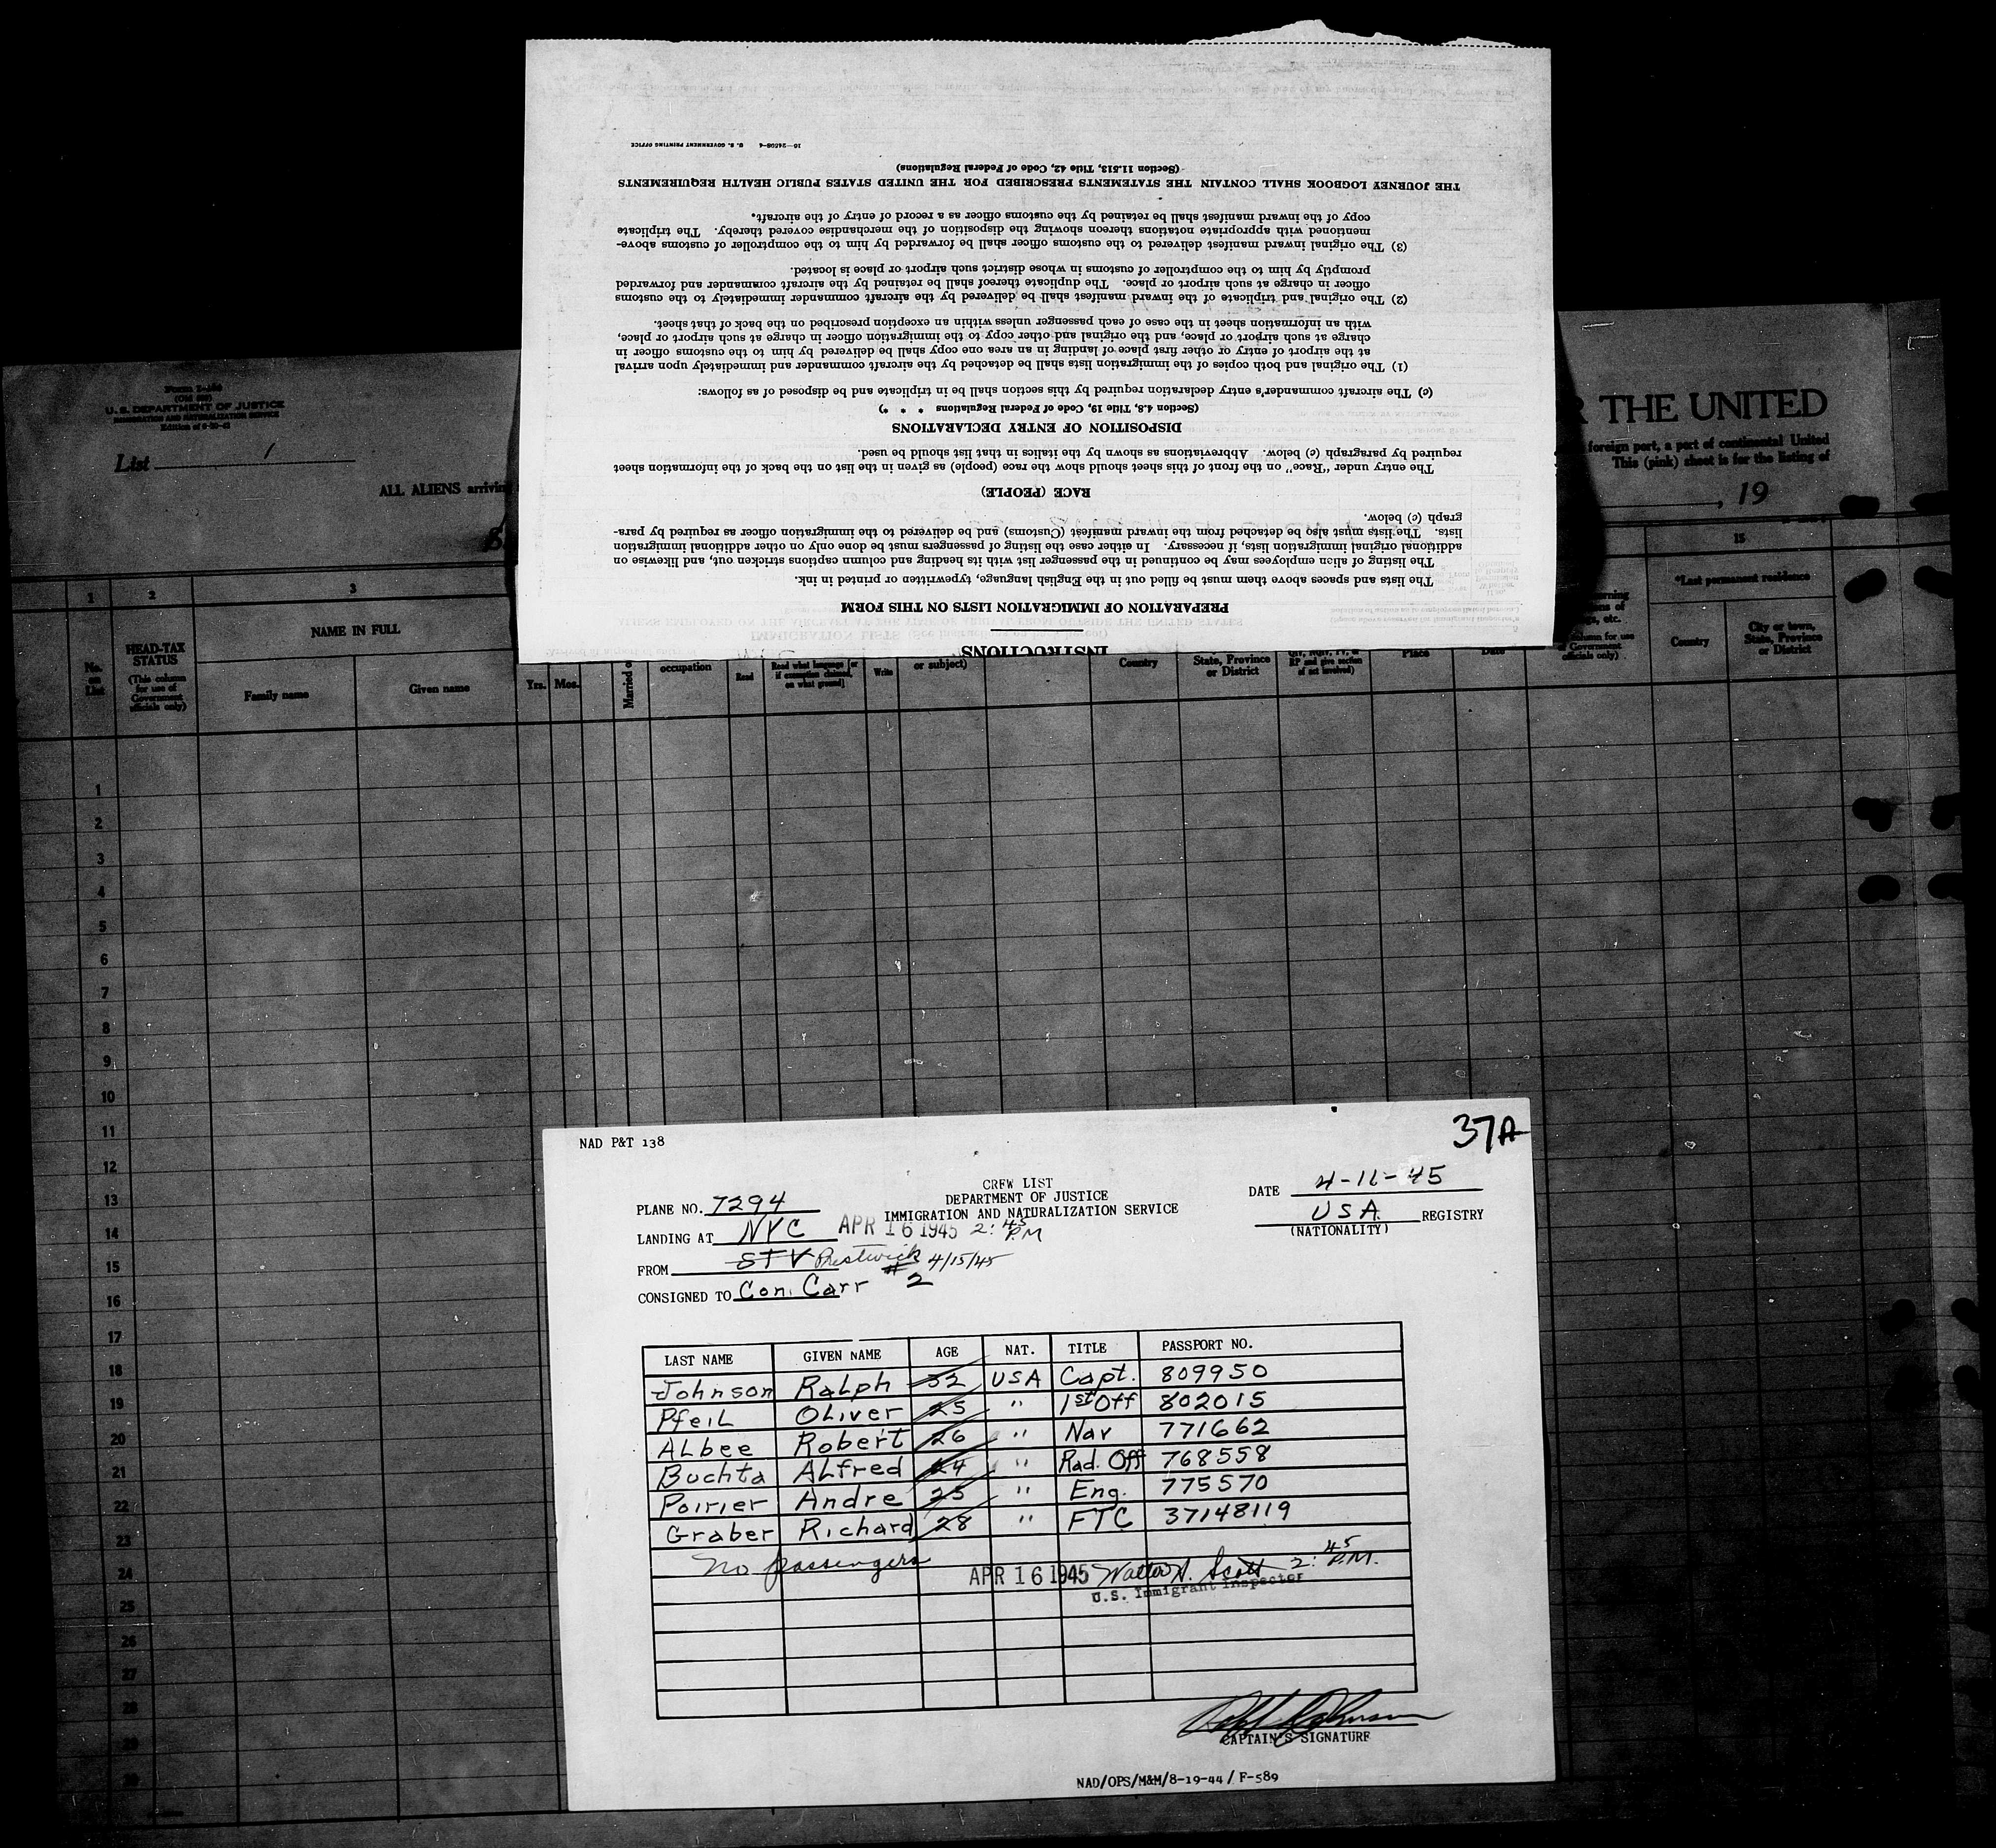 INSTRUCTIONS
PREPARATION OF IMMIGRATION LISTS ON THIS FORM
The lists and spaces above them must be filled out in the English language, typewritten or printed in ink.
The listing of alien employees may be continued in the passenger list with its heading and column captions stricken out, and likewise on
additional original immigration lists, if necessary. In either case the listing of passengers must be done only on other additional immigration
lists. The lists must also be detached from the inward manifest (Customs) and be delivered to the immigration officer as required by para-
graph (c) below.
RACE (PEOPLE)
The entry under "Race" on the front of this sheet should show the race (people) as given in the list on the back of the information sheet
required by paragraph (c) below. Abbreviations as shown by the italics in that list should be used.
DISPOSITION OF ENTRY DECLARATIONS
(Section 4.8, Title 19, Code of Federal Regulations * * *)
(c) The aircraft commander's entry declaration required by this section shall be in triplicate and be disposed of as follows:
(1) The original and both copies of the immigration lists shall be detached by the aircraft commander and immediately upon arrival
at the airport of entry or other first place of landing in an area one copy shall be delivered by him to the customs officer in
charge at such airport or place, and the original and other copy to the immigration officer in charge at such airport or place,
with an information sheet in the case of each passenger unless within an exception prescribed on the back of that sheet.
(2) The original and triplicate of the inward manifest shall be delivered by the aircraft commander immediately to the customs
officer in charge at such airport or place. The duplicate thereof shall be retained by the aircraft commander and forwarded
promptly by him to the comptroller of customs in whose district such airport or place is located.
(3) The original inward manifest delivered to the customs officer shall be forwarded by him to the comptroller of customs above-
mentioned with appropriate notations thereon showing the disposition of the merchandise covered thereby. The triplicate
copy of the inward manifest shall be retained by the customs officer as a record of entry of the aircraft.
THE JOURNEY LOGBOOK SHALL CONTAIN THE STATEMENTS PRESCRIBED FOR THE UNITED STATES PUBLIC HEALTH REQUIREMENTS
(Section 11.513, Title 42, Code of Federal Regulations)
16—24508-4 U. S. GOVERNMENT PRINTING OFFICE
U. S. DEPARTMENT OF JUSTICE
IMMIGRATION AND NATURALIZATION SERVICE
List 1
ALL ALIENS arriving
R THE UNITED
foreign port, a part of continental United
This (pink) sheet is for the listing of
, 19
1 2 3 15
No. on List
HEAD-TAX STATUS
(This column for use of Government officials only)
NAME IN FULL
Family name Given name
Yrs. Mos.
Married o
occupation
Read
Read what language [or if exemption claimed, on what ground]
Write
or subject)
Country
State, Province or District
Place
Date
*Last permanent residence
Country
City or town, State, Province or District
1
2
3
4
5
6
7
8
9
10
11
12
13
14
15
16
17
18
19
20
21
22
23
24
25
26
27
28
29
30
NAD P&T 138
37A
CREW LIST
DEPARTMENT OF JUSTICE
IMMIGRATION AND NATURALIZATION SERVICE
DATE 4-16-45
USA REGISTRY
(NATIONALITY)
PLANE NO. 7294
LANDING AT NYC APR 16 1945 2:45 PM
FROM STV Prestwick 4/15/45
CONSIGNED TO Con. Carr #2
LAST NAME GIVEN NAME AGE NAT. TITLE PASSPORT NO.
Johnson Ralph 32 USA Capt. 809950
Pfeil Oliver 25 " 1st Off 802015
Albee Robert 26 " Nav 771662
Buchta Alfred 24 " Rad. Off 768558
Poirier Andre 25 " Eng. 775570
Graber Richard 28 " FTC 37148119
No passengers
APR 16 1945 Walter A. Scott 2:45 P.M.
U.S. Immigrant Inspector
Ralph Johnson
CAPTAIN'S SIGNATURE
NAD/OPS/M&M/8-19-44/ F-589